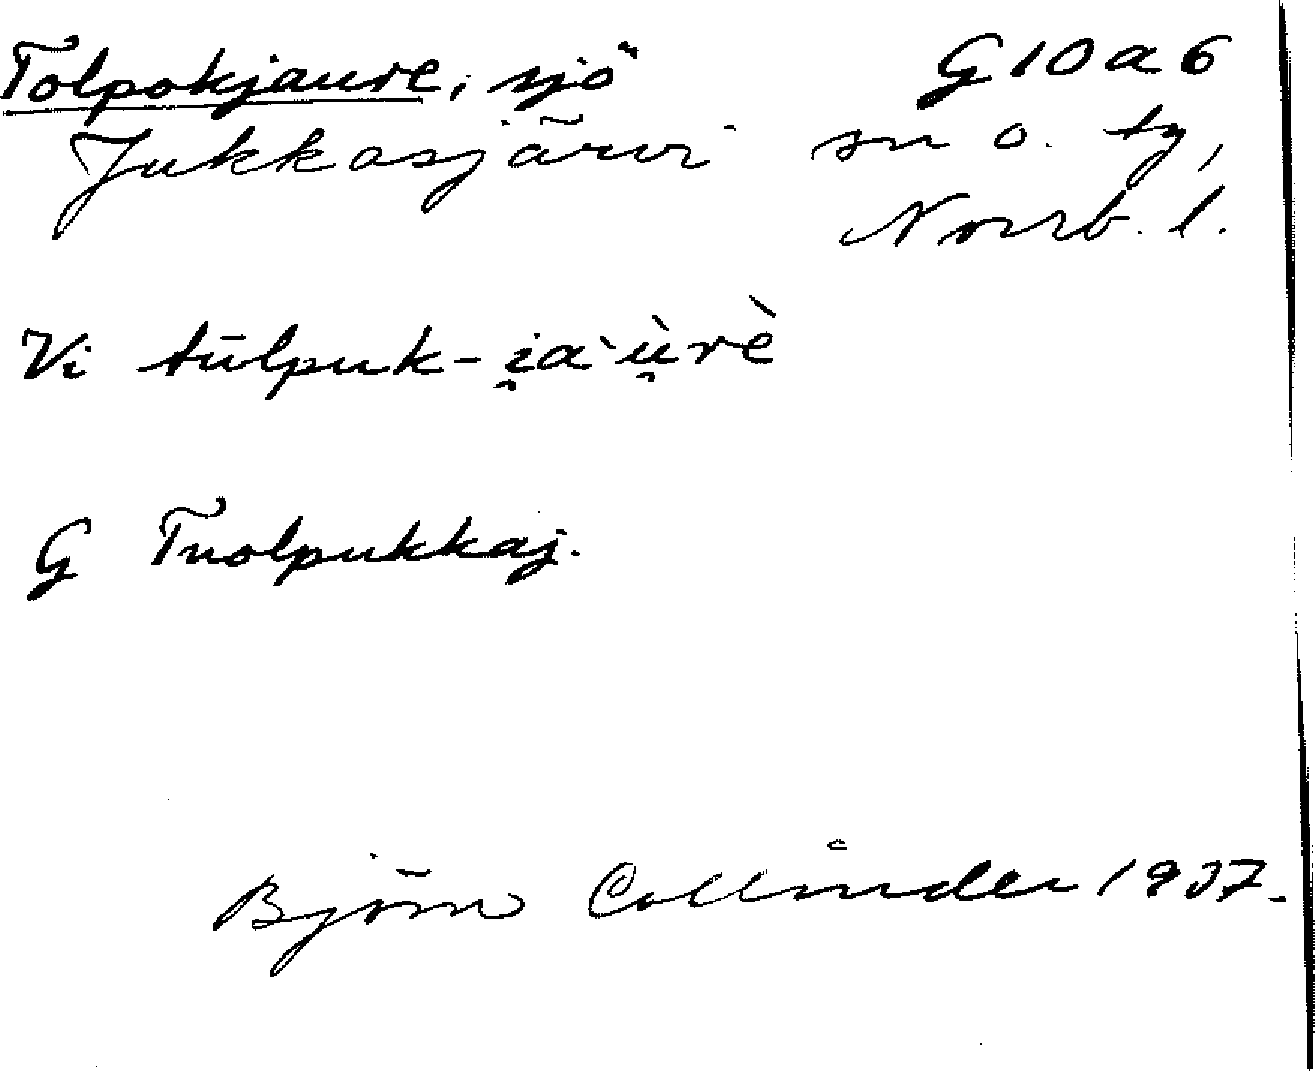 Tolpokjaure, sjö G10a6
Jukkasjärvi sn o. tg,
Norrb. l.
Vi tūlpuk-i̯aˋù̯rè
G Tuolpukkaj.
Björn Collinder 1937.